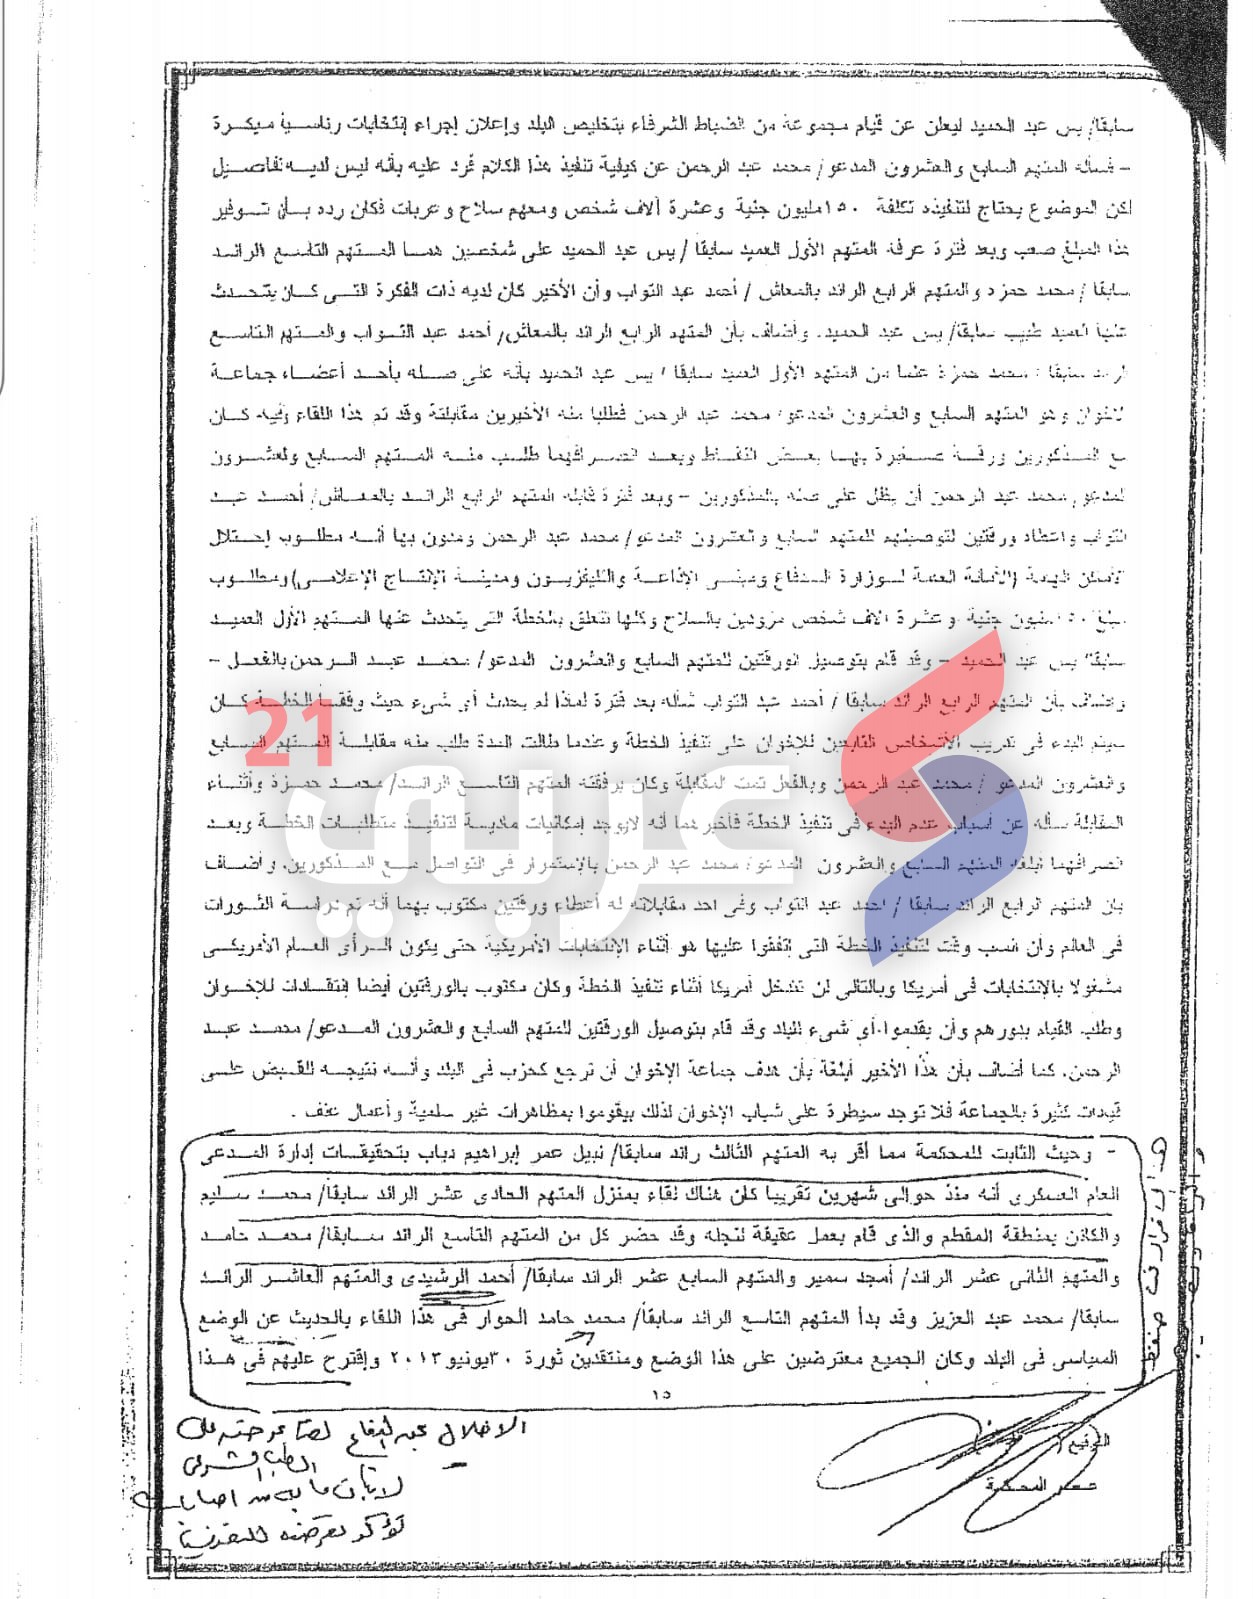 سابقا/ يس عبد الحميد ليعلن عن قيام مجموعة من الضباط الشرفاء بتخليص البلد وإعلان إجراء إنتخابات رئاسية مبكرة
- فسأله المتهم السابع والعشرون المدعو/ محمد عبد الرحمن عن كيفية تنفيذ هذا الكلام فرد عليه بأنه ليس لديه تفاصيل
لكن الموضوع يحتاج لتنفيذه تكلفة ١٥٠ مليون جنية وعشرة آلاف شخص ومعهم سلاح وعربات فكان رده بأن توفير
هذا المبلغ صعب وبعد فترة عرفه المتهم الأول العميد سابقا/ يس عبد الحميد على شخصين هما المتهم التاسع الرائد
سابقا/ محمد حمزه والمتهم الرابع الرائد بالمعاش/ أحمد عبد التواب وأن الأخير كان لديه ذات الفكرة التى كان يتحدث
عنها العميد طبيب سابقا/ يس عبد الحميد. وأضاف بأن المتهم الرابع الرائد بالمعاش/ أحمد عبد التواب والمتهم التاسع
الرائد سابقا/ محمد حمزة علما من المتهم الأول العميد سابقا/ يس عبد الحميد بأنه على صله بأحد أعضاء جماعة
الاخوان وهو المتهم السابع والعشرون المدعو/ محمد عبد الرحمن فطلبا منه الأخيرين مقابلتة وقد تم هذا اللقاء وفيه كان
مع المذكورين ورقة صغيرة بها بعض النقاط وبعد انصرافهما طلب منه المتهم السابع والعشرون
المدعو/ محمد عبد الرحمن أن يظل على صله بالمذكورين - وبعد فترة قابله المتهم الرابع الرائد بالمعاش/ أحمد عبد
التواب واعطاه ورقتين لتوصيلهم للمتهم السابع والعشرون المدعو/ محمد عبد الرحمن ومدون بها أنه مطلوب إحتلال
الأماكن الهامة (الأمانة العامة لوزارة الدفاع ومبنى الإذاعة والتليفزيون ومدينة الإنتاج الإعلامى) ومطلوب
مبلغ ١٥٠ مليون جنية وعشرة الاف شخص مزودين بالسلاح وكلها تتعلق بالخطة التى يتحدث عنها المتهم الأول العميد
سابقا/ يس عبد الحميد - وقد قام بتوصيل الورقتين للمتهم السابع والعشرون المدعو/ محمد عبد الرحمن بالفعل -
وأضاف بأن المتهم الرابع الرائد سابقا/ أحمد عبد التواب سأله بعد فترة لماذا لم يحدث أى شىء حيث وفقا للخطة كان
سيتم البدء فى تدريب الأشخاص التابعين للإخوان على تنفيذ الخطة وعندما طالت المدة طلب منه مقابلة المتهم السابع
والعشرون المدعو/ محمد عبد الرحمن وبالفعل تمت المقابلة وكان برفقته المتهم التاسع الرائد/ محمد حمزة وأثناء
المقابلة سأله عن أسباب عدم البدء فى تنفيذ الخطة فأخبرهما أنه لايوجد إمكانيات مادية لتنفيذ متطلبات الخطة وبعد
انصرافهما أبلغه المتهم السابع والعشرون المدعو/ محمد عبد الرحمن بالإستمرار فى التواصل مع المذكورين. وأضاف
بأن المتهم الرابع الرائد سابقا/ احمد عبد التواب وفى احد مقابلاته له أعطاه ورقتين مكتوب بهما أنه تم دراسة الثورات
فى العالم وأن انسب وقت لتنفيذ الخطة التى إتفقوا عليها هو أثناء الإنتخابات الأمريكية حتى يكون الرأى العام الأمريكى
مشغولا بالإنتخابات فى أمريكا وبالتالى لن تتدخل أمريكا أثناء تنفيذ الخطة وكان مكتوب بالورقتين أيضا إنتقادات للإخوان
وطلب القيام بدورهم وأن يقدموا أى شىء للبلد وقد قام بتوصيل الورقتين للمتهم السابع والعشرون المدعو/ محمد عبد
الرحمن. كما أضاف بأن هذا الأخير أبلغة بأن هدف جماعة الإخوان أن ترجع كحزب فى البلد وأنه نتيجه للقبض على
قيادات كثيرة بالجماعة فلا توجد سيطرة على شباب الإخوان لذلك بيقوموا بمظاهرات غير سلمية وأعمال عنف .
- وحيث الثابت للمحكمة مما أقر به المتهم الثالث رائد سابقا/ نبيل عمر إبراهيم دباب بتحقيقات إدارة المدعى
العام العسكرى أنه منذ حوالى شهرين تقريبا كان هناك لقاء بمنزل المتهم الحادى عشر الرائد سابقا/ محمد سليم
والكائن بمنطقة المقطم والذى قام بعمل عقيقة لنجله وقد حضر كل من المتهم التاسع الرائد سابقا/ محمد حامد
والمتهم الثانى عشر الرائد/ أمجد سمير والمتهم السابع عشر الرائد سابقا/ أحمد الرشيدى والمتهم العاشر الرائد
سابقا/ محمد عبد العزيز وقد بدأ المتهم التاسع الرائد سابقا/ محمد حامد الحوار فى هذا اللقاء بالحديث عن الوضع
السياسى فى البلد وكان الجميع معترضين على هذا الوضع ومنتقدين ثورة ٣٠يونيو٢٠١٣ وإقترح عليهم فى هذا
١٥
هذا الاقرار تحت ضغط
التوقيع (
الاخلال بحق الدفاع لعدم عرضه على
الطب الشرعى
لاثبات ما به من اصابات
تؤكد تعرضه للتعذيب
عربي 21